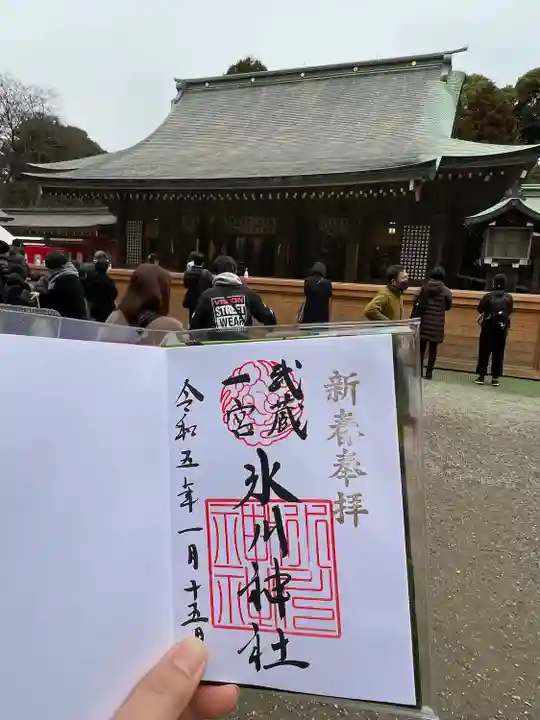 新春奉拝
武蔵
一宮
氷川神社
令和五年一月十五日
氷川
神社
VISION
STREET
WEAR